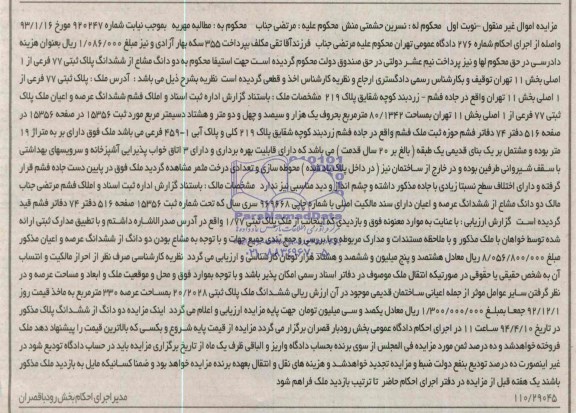 مزایده اموال غیر منقول –نوبت اول محکوم له : نسرین حشمتی منش محکوم علیه : مرتضی جناب محکوم به : مطالبه مهریه بموجب نیابت شماره ۹۲۰۲۴۷ مورخ ۹۳/۱/۱۶
واصله از اجرای احکام شماره ۲۷۶ دادگاه عمومی تهران محکوم علیه مرتضی جناب فرزند آقا تقی مکلف بپرداخت ۳۵۵ سکه بهار آزادی و نیز مبلغ ۱/۰۸۶/۰۰۰ ریال بعنوان هزینه
دادرسی در حق محکوم لها و نیز پرداخت نیم عشر دولتی در حق صندوق دولت محکوم گردیده است جهت استیفا محکوم به دو دانگ مشاع از ششدانگ پلاک ثبتی ۷۷ فرعی از ۱
اصلی بخش ۱۱ تهران توقیف و بکارشناس رسمی دادگستری ارجاع و نظریه کارشناس اخذ و قطعی گردیده است نظریه بشرح ذیل می باشد : آدرس ملک : پلاک ثبتی ۷۷ فرعی از
۱ اصلی بخش ۱۱ تهران واقع در جاده فشم – زردبند کوچه شقایق پلاک ۲۱۹ مشخصات ملک : باستناد گزارش اداره ثبت اسناد و املاک فشم ششدانگ عرصه و اعیان ملک پلاک
ثبتی ۷۷ فرعی از ۱ اصلی بخش ۱۱ تهران بمساحت ۸۰/۱۳۴۲ مترمربع بحروف یک هزار و سیصد و چهل و دو متر و هشتاد دسیمتر مربع مورد ثبت ۱۵۳۵۶ در صفحه ۱۵۳۵۶ در
صفحه ۵۱۶ دفتر ۷۴ دفاتر فشم حوزه ثبت ملک فشم واقع در جاده فشم زردبند کوچه شقایق پلاک ۲۱۹ کلی و پلاک آبی ۱-۴۵۹ فرعی می باشد ملک فوق دارای بر به متراژ ۱۹
متر بوده و مشتمل بر یک بنای قدیمی یک طبقه ( بالغ بر ۲۰ سال قدمت ) می باشد که دارای قابلیت بهره برداری و دارای ۳ اتاق خواب پذیرایی آشپزخانه و سرویسهای بهداشتی
با سقف شیروانی طرفین بوده و در خارج از ساختمان نیز ( در داخل پلاک ) محوطه سازی و تعدادی درخت مثمر مشاهده گردید ملک فوق در پایین دست جاده فشم قرار
گرفته و دارای اختلاف سطح نسبتا زیادی با جاده مذکور داشته و چشم انداز و دید مناسبی نیز ندارد مشخصات مالک : باستناد گزارش اداره ثبت اسناد و املاک فشم مرتضی جناب
مالک دو دانگ مشاع از ششدانگ عرصه و اعیان دارای سند مالکیت اصلی با شماره چاپی ۱۲۹۶۶۸ سری سال که تحت شماره ثبت ۱۵۳۵۶ صفحه ۵۱۶ دفتر ۷۴ دفاتر فشم قید
گردیده است گزارش ارزیابی : با عنایت به موارد معنونه فوق و بازدیدی که اینجانب از ملک پلاک ثبتی ۱/۷۷ واقع در آدرس صدرالاشاره داشتم و با تطبیق مدارک ثبتی ارائه
شده توسط خواهان با ملک مذکور و با ملاحظه مستندات و مدارک مربوطه و با بررسی و جمع بندی جمیع جهات و با توجه به مشاع بودن دو دانگ از ششدانگ عرصه و اعیان مذکور
مبلغ ۸/۰۵۶/۸۰۰/۰۰۰ ریال معادل هشتصد و پنج میلیون و ششصد و هشتاد هزار تومان کارشناسی و ارزیابی می گردد نظریه کارشناسی صرف نظر از احراز مالکیت و انتساب
آن به شخص حقیقی یا حقوقی در صورتیکه انتقال ملک موصوف در دفاتر اسناد رسمی امکان پذیر باشد و با توجه بموارد فوق و محل و موقعیت ملک و ابعاد و مساحت عرصه و در
نظر گرفتن سایر عوامل موثر از جمله اعیانی ساختمان قدیمی موجود در آن ارزش ریالی ششدانگ ملک پلاک ثبتی ۲۰/۲۰۲۸ بمساحت عرصه ۳۳۰ مترمربع به ماخذ قیمت روز
۹۲/۱۲/۱ جمعا بمبلغ ۱/۳۰۰/۰۰۰/۰۰۰ ریال معادل یکصد و سی میلیون تومان جهت پایه مزایده ارزیابی و اعلام می گردد اینک مزایده دو دانگ از ششدانگ پلاک مذکور
در تاریخ ۹۴/۴/۱۰ ساعت ۱۱ در اجرای احکام دادگاه عمومی بخش رودبار قصران برگزار می گردد مزایده از قیمت پایه شروع و بکسی که بالاترین قیمت را پیشنهاد دهد ملک
فروخته خواهدشد و ده درصد ثمن مورد مزایده فی المجلس از سوی برنده بحساب دادگاه واریز و الباقی ظرف یک ماه از تاریخ برگزاری مزایده باید در حساب دادگاه تودیع شود در
غیر اینصورت ده درصد تودیع بنفع دولت ضبط و مزایده تجدید خواهدشد و هزینه های نقل و انتقال بعهده برنده مزایده خواهد بود و ضمنا کسانیکه مایل به بازدید ملک مذکور
باشند یک هفته قبل از مزایده در دفتر اجرای احکام حاضر تا ترتیب بازدید ملک فراهم شود
۱۱۰/۲۹۰۴۵ مدیر اجرای احکام بخش رودبار قصران